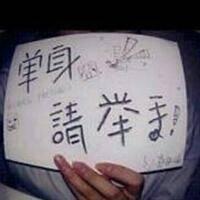 单身
請举手!